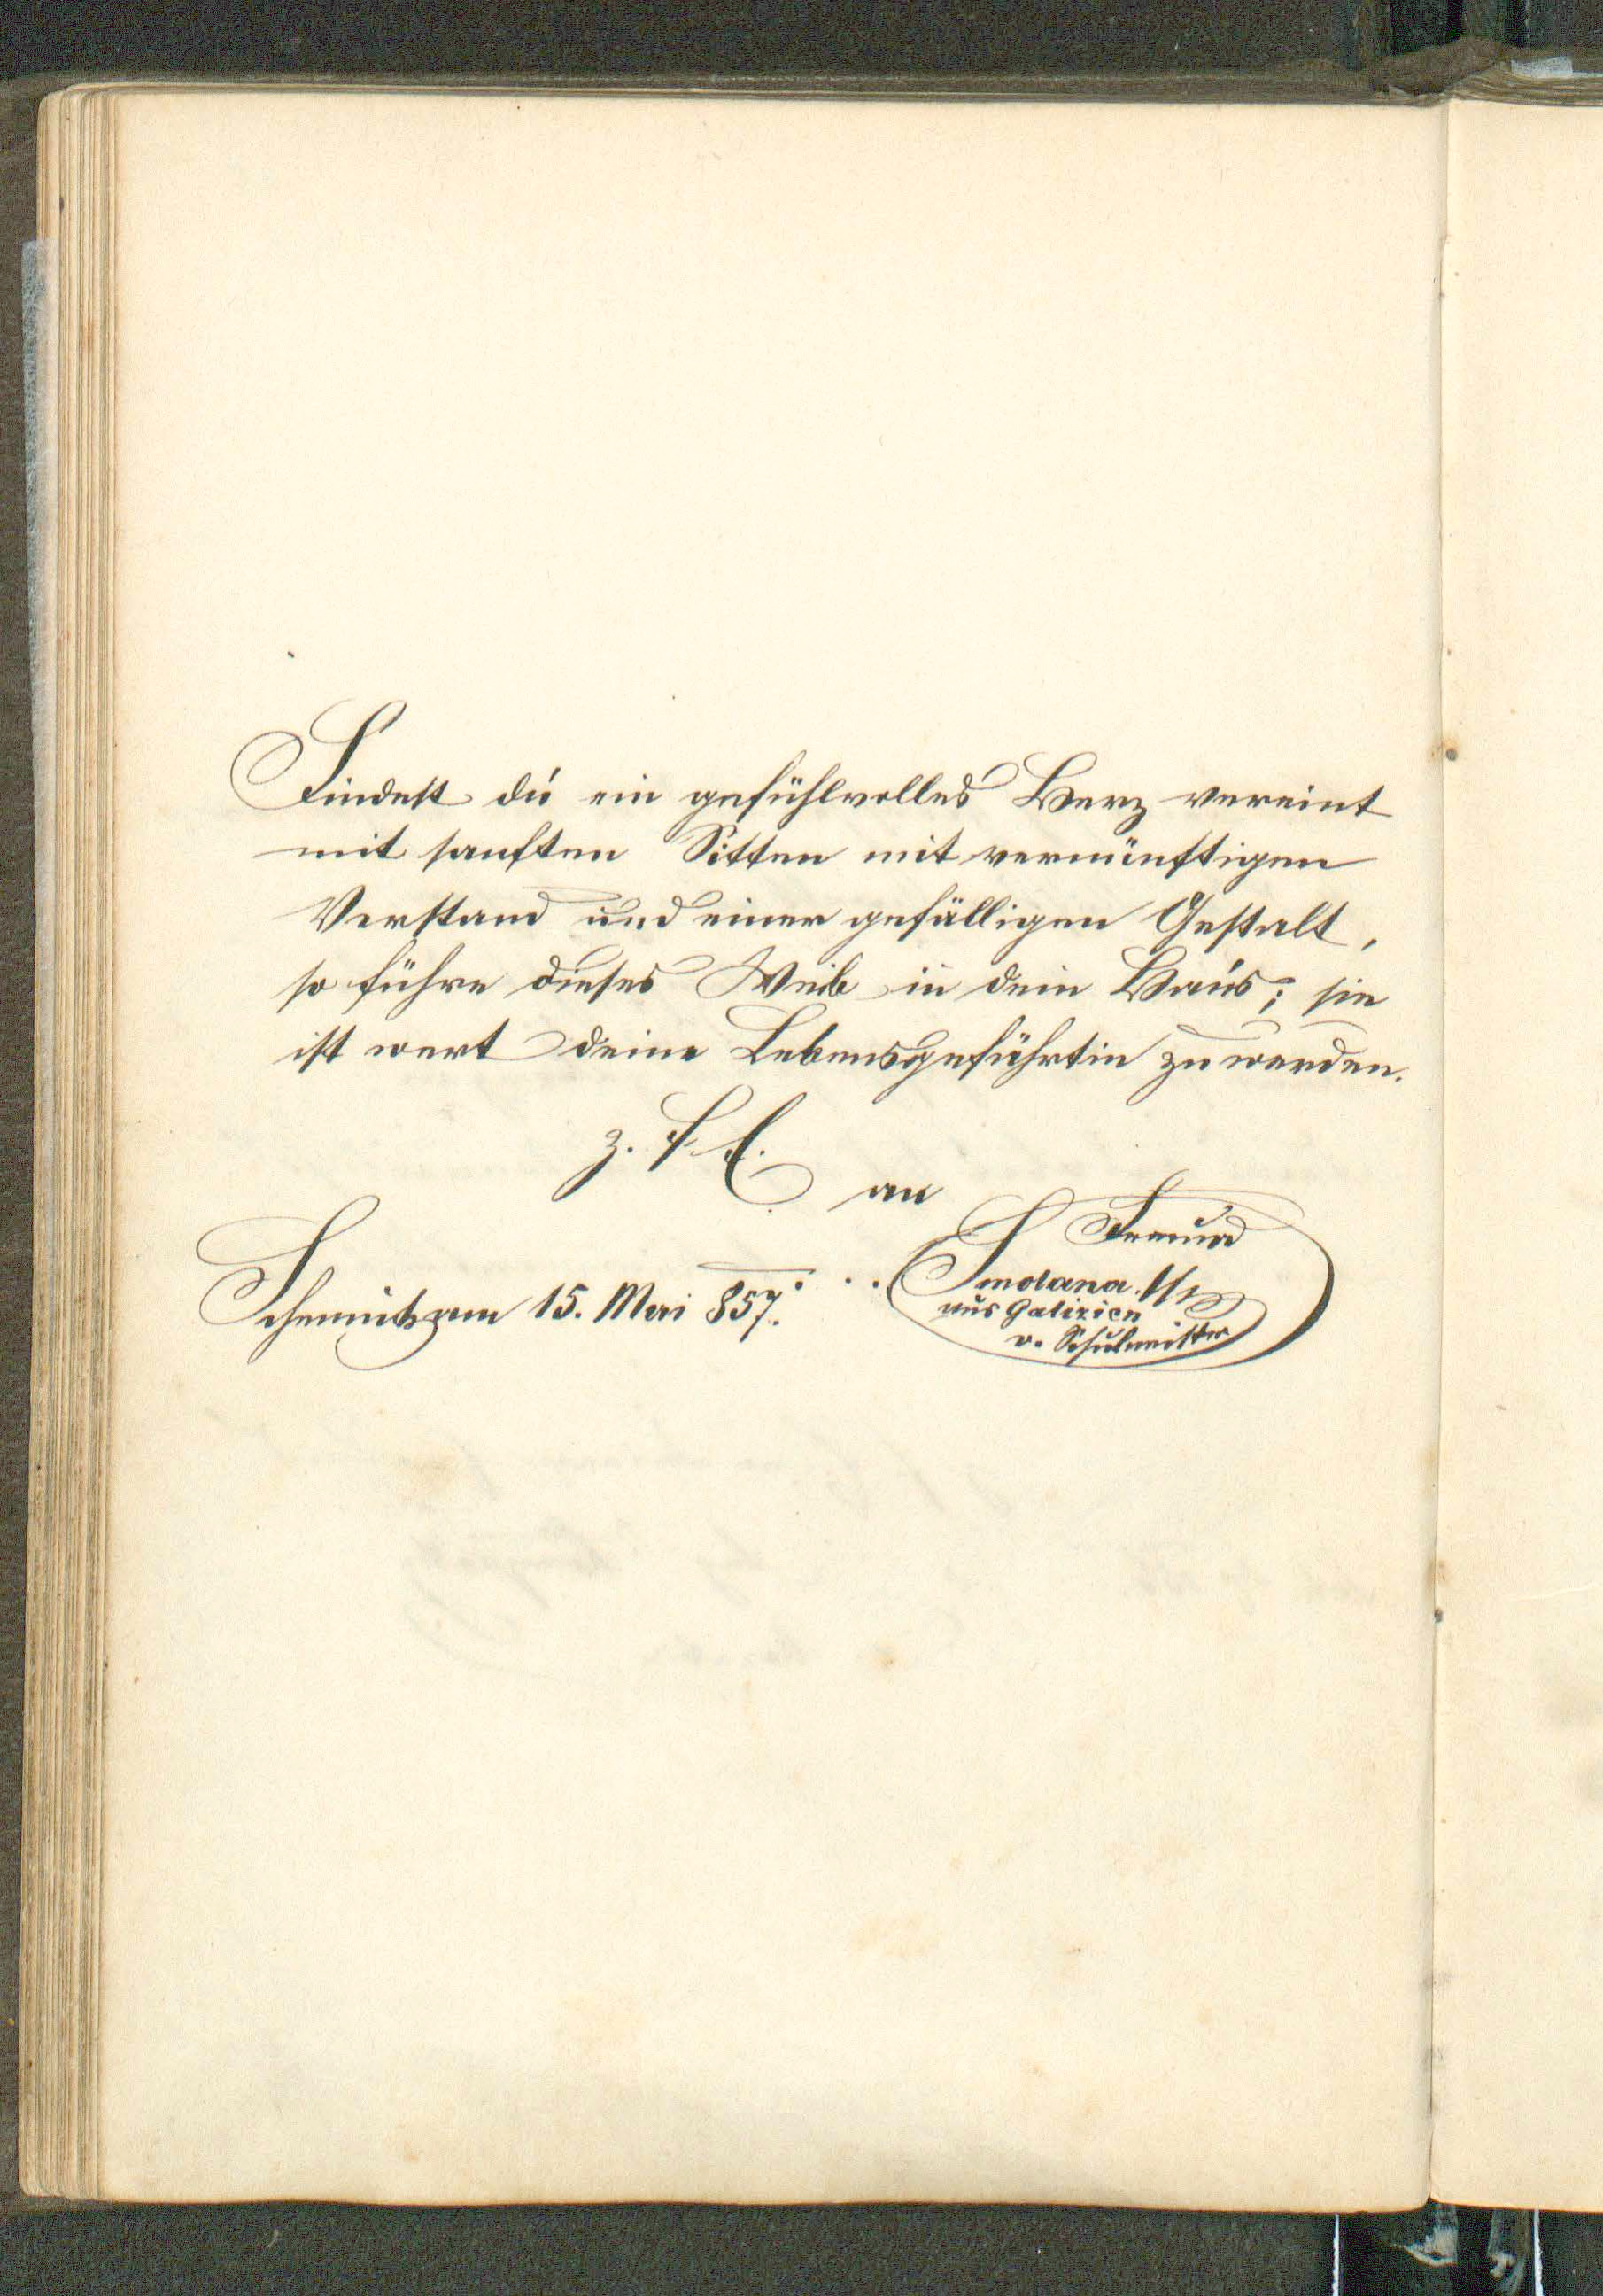 Findest du ein gefühlvolles Herz vereint
mit sanften Sitten mit vernünftigen
Verstand und einer gefälligen Gestalt,
so führe dieses Weib in dein Haus; sie
ist wert deine Lebensgefährtin zu werden.
z. F E.
an
Freund
Schemnitz am 15. Mai 857.
Smolana
aus Galizien
v. Schulmeister